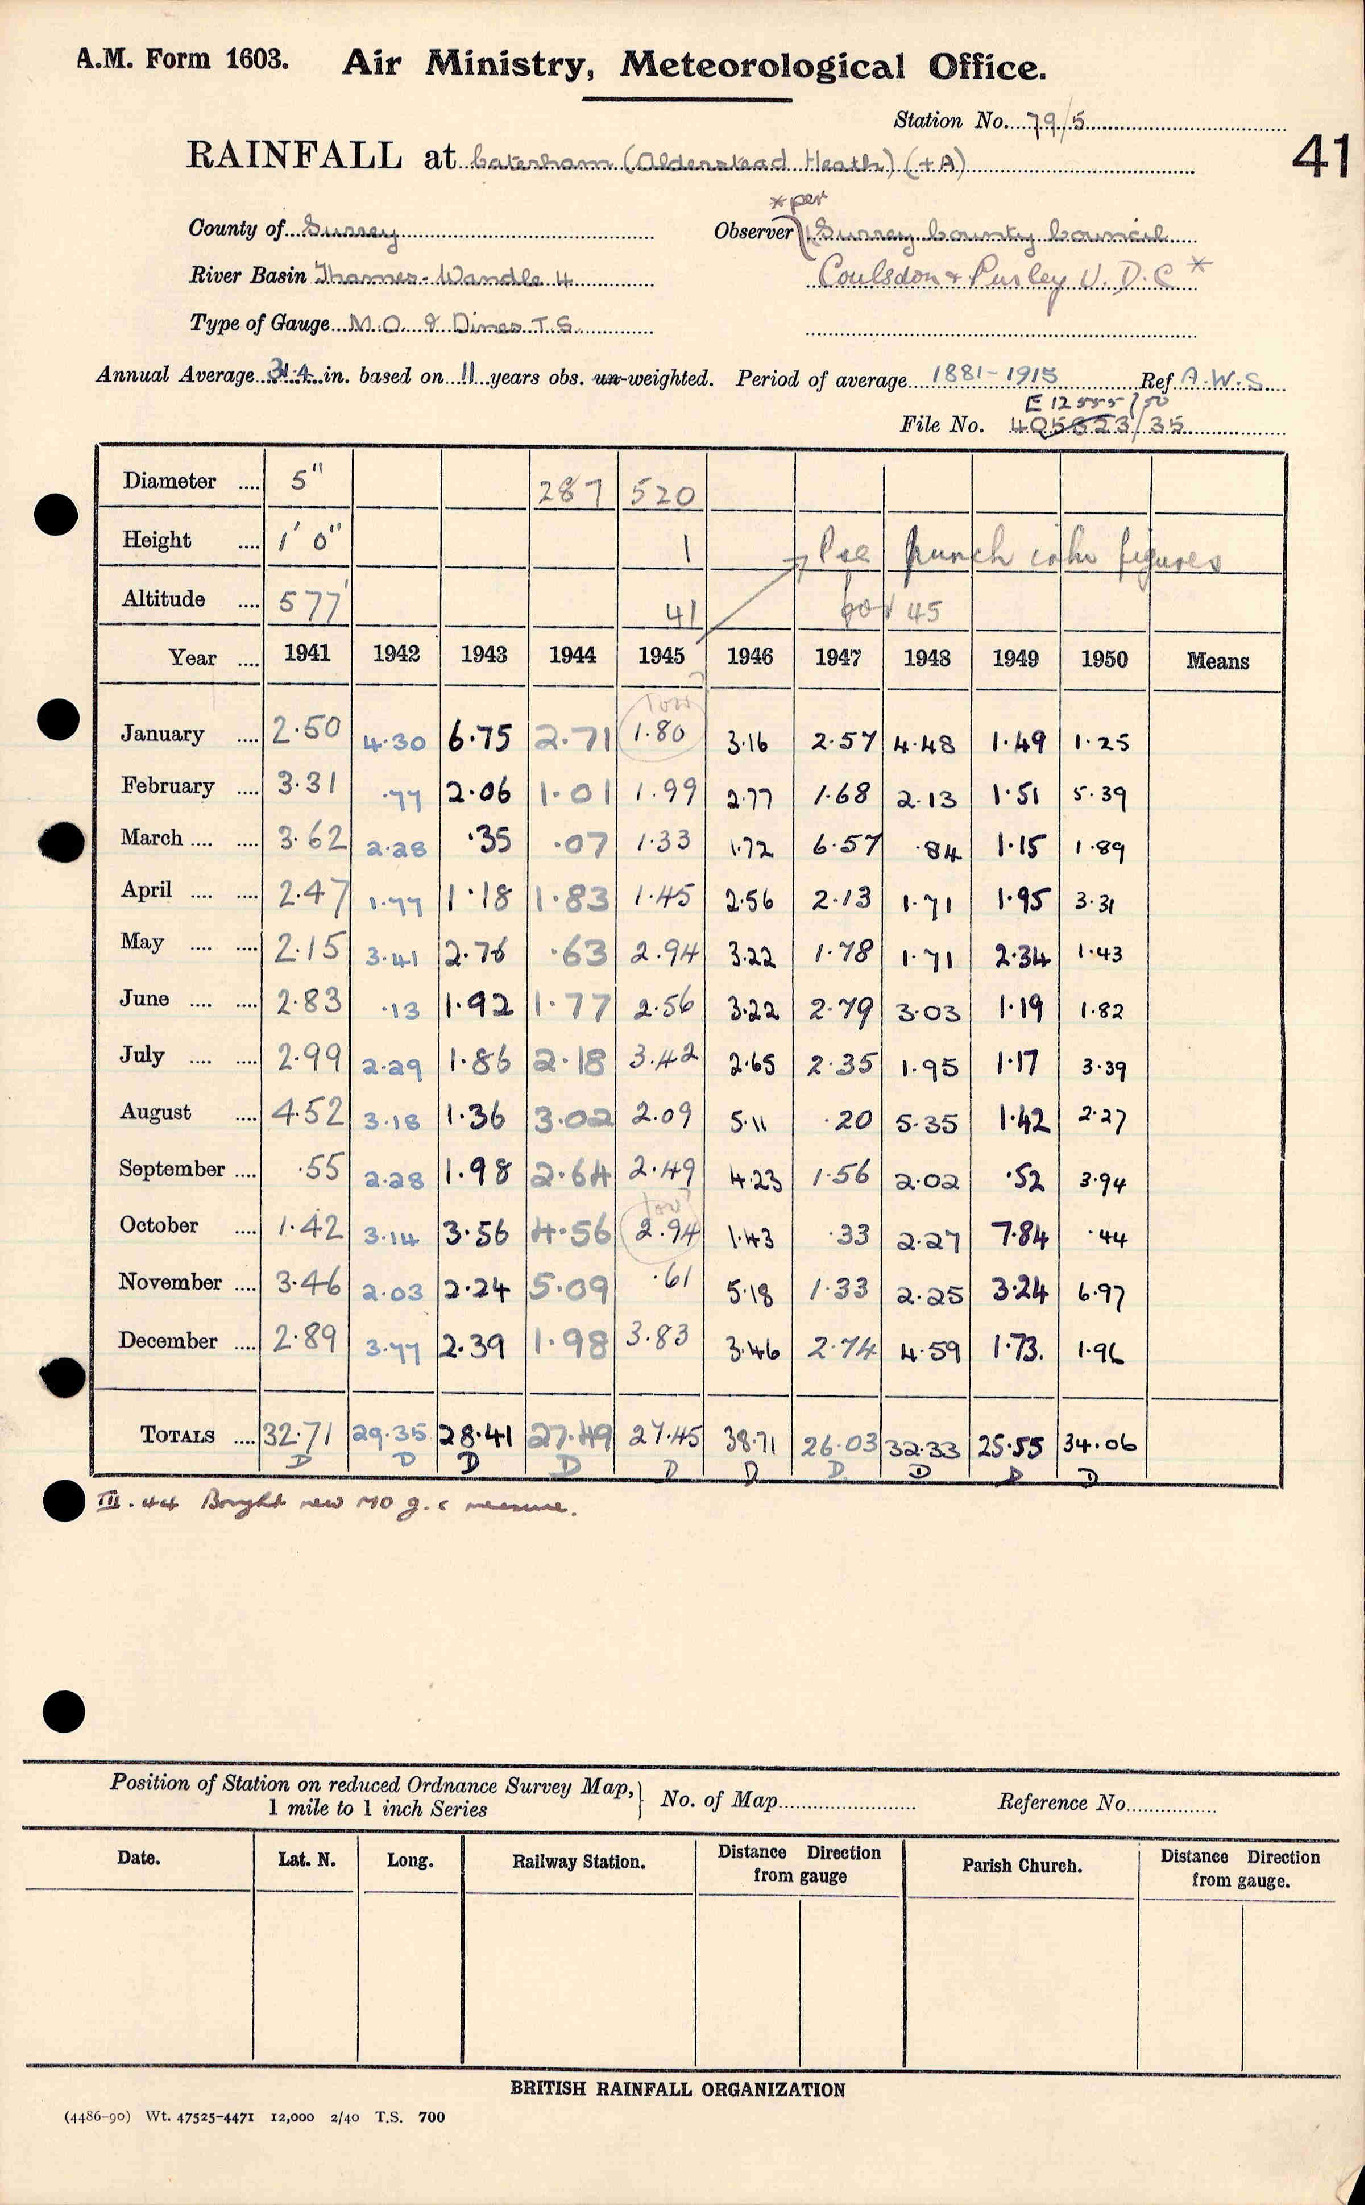 A.M. Form 1603. Air Ministry, Meteorological Office.
Station No. 79/5
41
RAINFALL at Caterham (Alderstead Heath) (+A)
* per
County of Surrey Observer Surrey County Council
River Basin Thames-Wandle 4 Coulsdon & Purley U.D.C *
Type of Gauge M.O. & Dines T.S.
Annual Average 31.4 in. based on 11 years obs. un-weighted. Period of average 1881-1915 Ref A.W.S.
E 12555/50
File No. 405623/35
Diameter .... 5" 287 520
Height .... 1' 0" 1 Pse punch into figures
Altitude .... 577' 41 for 45
Year .... 1941 1942 1943 1944 1945 1946 1947 1948 1949 1950 Means
low?
January .... 2.50 4.30 6.75 2.71 1.80 3.16 2.57 4.48 1.49 1.25
February .... 3.31 .77 2.06 1.01 1.99 2.77 1.68 2.13 1.51 5.39
March .... .... 3.62 2.28 .35 .07 1.33 1.72 6.57 .84 1.15 1.89
April .... .... 2.47 1.77 1.18 1.83 1.45 2.56 2.13 1.71 1.95 3.31
May .... .... 2.15 3.41 2.76 .63 2.94 3.22 1.78 1.71 2.34 1.43
June .... .... 2.83 .13 1.92 1.77 2.56 3.22 2.79 3.03 1.19 1.82
July .... .... 2.99 2.29 1.86 2.18 3.42 2.65 2.35 1.95 1.17 3.39
August .... 4.52 3.18 1.36 3.02 2.09 5.11 .20 5.35 1.42 2.27
September .... .55 2.28 1.98 2.64 2.49 4.23 1.56 2.02 .52 3.94
low?
October .... 1.42 3.14 3.56 4.56 2.94 1.43 .33 2.27 7.84 .44
November .... 3.46 2.03 2.24 5.09 .61 5.18 1.33 2.25 3.24 6.97
December .... 2.89 3.77 2.39 1.98 3.83 3.46 2.74 4.59 1.73. 1.96
TOTALS .... 32.71 29.35 28.41 27.49 27.45 38.71 26.03 32.33 25.55 34.06
D D D D D D D D D D
III.44 Bought new MO g. & measure.
Position of Station on reduced Ordnance Survey Map, } No. of Map Reference No.
1 mile to 1 inch Series
Date. Lat. N. Long. Railway Station. Distance Direction from gauge Parish Church. Distance Direction from gauge.
BRITISH RAINFALL ORGANIZATION
(4486-90) Wt. 47525-4471 12,000 2/40 T.S. 700